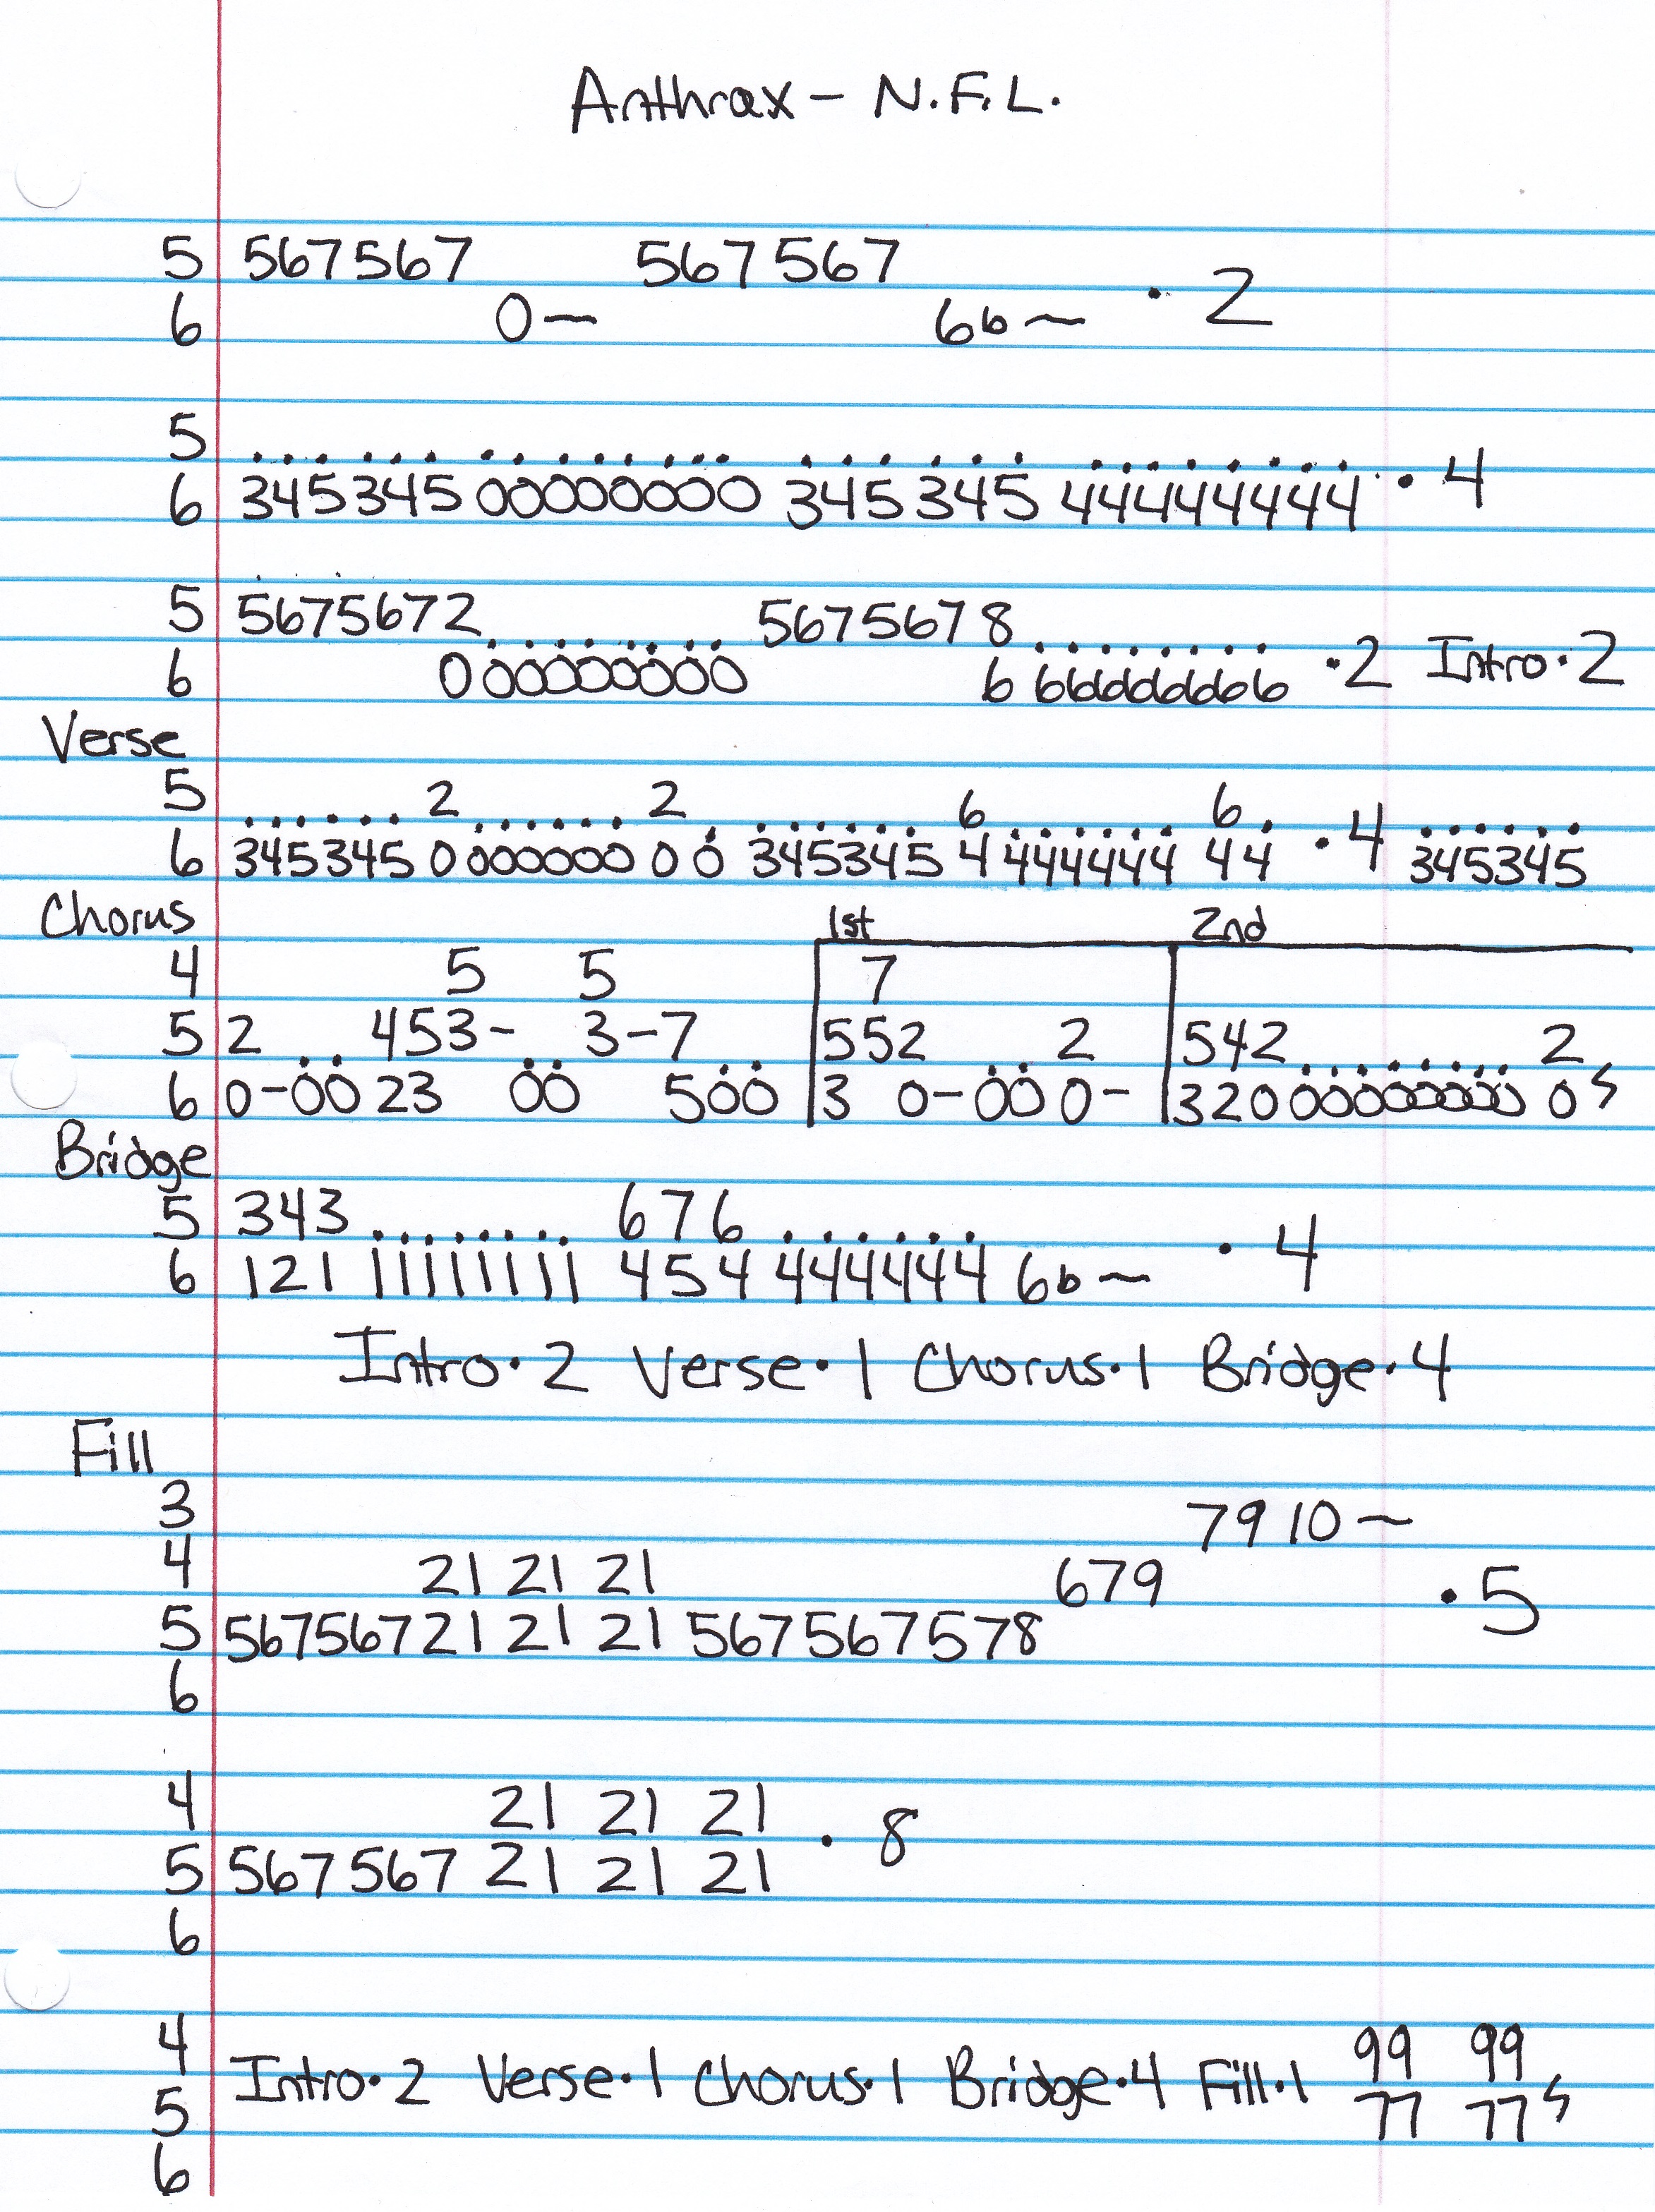 Anthrax - N.F.L.
5 567567 567 567
6 0~ 6b~ · 2
5
6 345345 00000000 345 345 44444444 · 4
5 5675672 5675678
6 0 00000000 6 66666666 ·2 Intro·2
Verse
5 2 2 6 6
6 345345 0 000000 0 0 345345 4 444444 44 ·4 345345
Chorus 1st 2nd
4 5 5 7
5 2 453- 3-7 552 2 542 2
6 0-00 23 00 500 3 0-00 0- 320 000000000 0
Bridge
5 343 676
6 121 11111111 454 444444 6b~ · 4
Intro·2 Verse·1 Chorus·1 Bridge·4
Fill
3 7910~
4 21 21 21 679 ·5
5 56756721 21 21 567567578
6
4 21 21 21 · 8
5 567 567 21 21 21
6
4 99 99
Intro·2 Verse·1 Chorus·1 Bridge·4 Fill·1
5 77 77
6